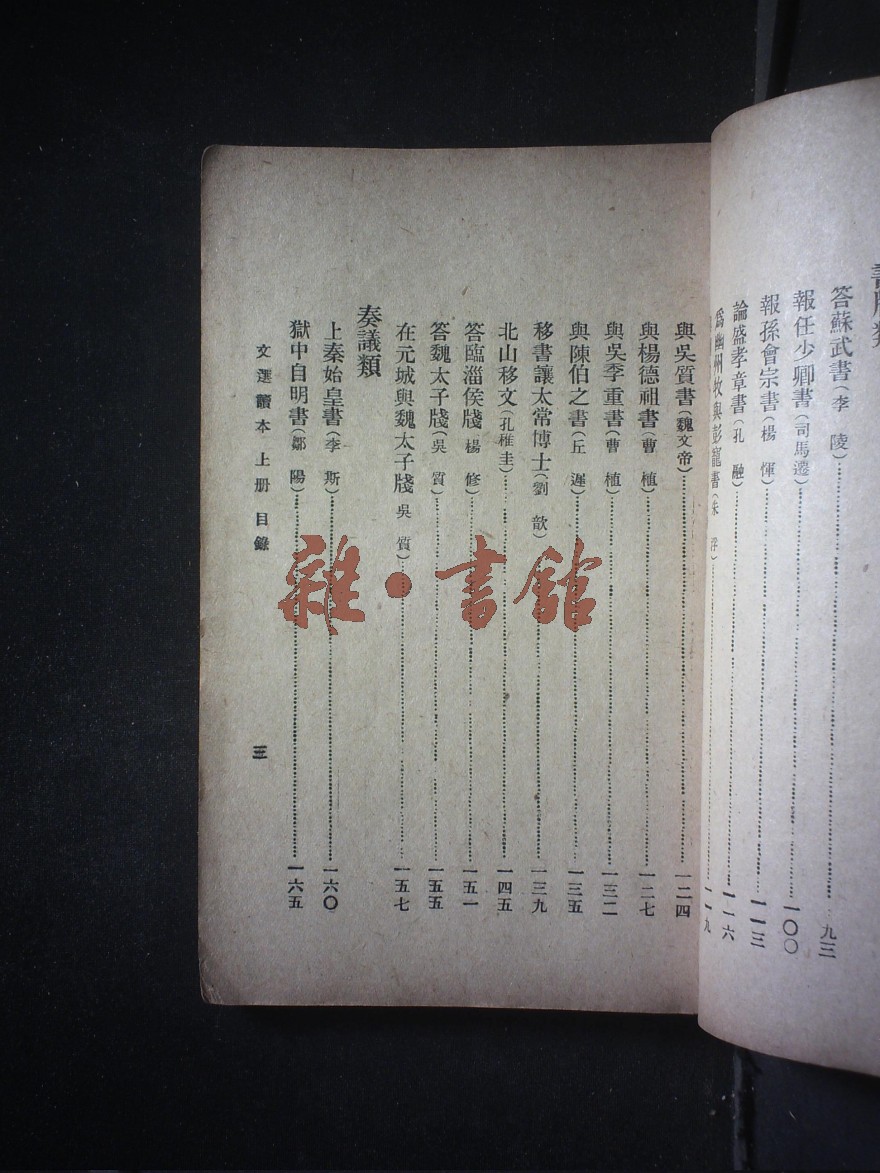 答蘇武書(李陵)………九三
報任少卿書(司馬遷)………一〇〇
報孫會宗書(楊惲)………一一三
論盛孝章書(孔融)………一一六
爲幽州牧與彭寵書(朱浮)………一一九
與吳質書(魏文帝)………一二四
與楊德祖書(曹植)………一二七
與吳季重書(曹植)………一三二
與陳伯之書(丘遲)………一三五
移書讓太常博士(劉歆)………一三九
北山移文(孔稚圭)………一四五
答臨淄侯牋(楊修)………一五一
答魏太子牋(吳質)………一五五
在元城與魏太子牋(吳質)………一五七
奏議類
上秦始皇書(李斯)………一六〇
獄中自明書(鄒陽)………一六五
文選讀本 上册 目錄
三
雜·書館